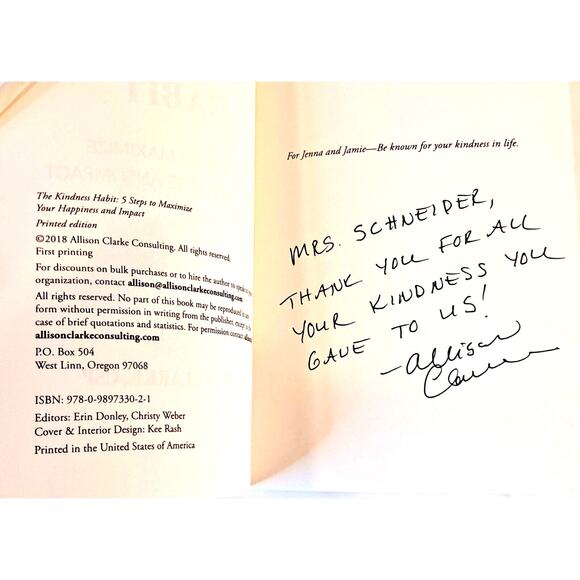 The Kindness Habit: 5 Steps to Maximize
Your Happiness and Impact
Printed edition
©2018 Allison Clarke Consulting. All rights reserved.
First printing
For discounts on bulk purchases or to hire the author to speak to
organization, contact allison@allisonclarkeconsulting.com.
All rights reserved. No part of this book may be reproduced in any
form without permission in writing from the publisher, except in the
case of brief quotations and statistics. For permission contact
allisonclarkeconsulting.com
P.O. Box 504
West Linn, Oregon 97068
ISBN: 978-0-9897330-2-1
Editors: Erin Donley, Christy Weber
Cover & Interior Design: Kee Rash
Printed in the United States of America
For Jenna and Jamie—Be known for your kindness in life.
MRS. SCHNEIDER,
THANK YOU FOR ALL
YOUR KINDNESS YOU
GAVE TO US!
—Allison
Clarke